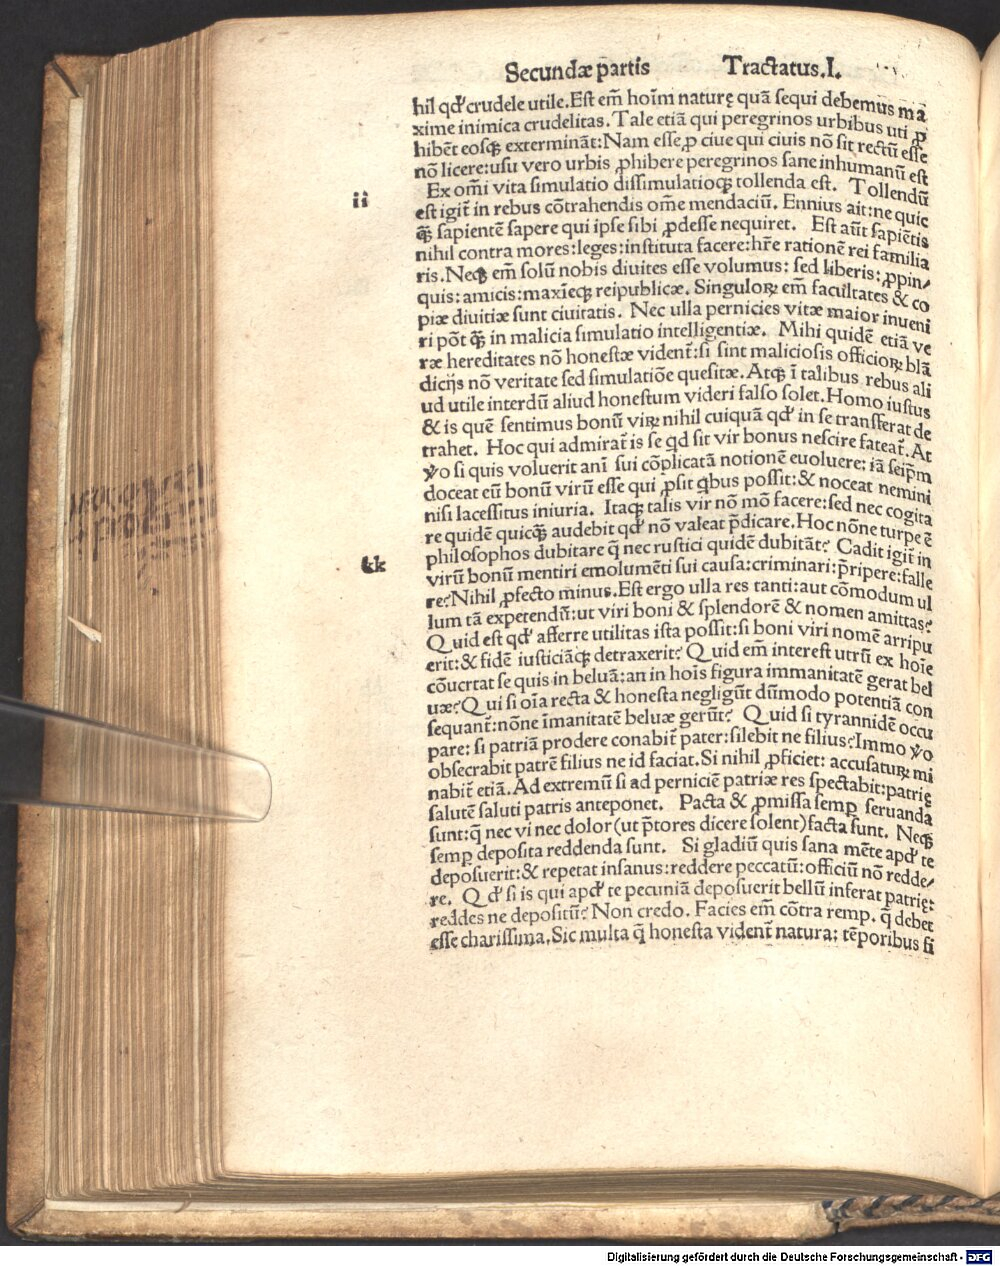 Secundæ p̄artis Tractatus.I.
hil qđ crudele utile.Est em̄ hoīm naturę quā sequi debemus ma
xime inimica crudelitas.Tale etiā qui peregrinos urbibus uti ꝓ
hibēt eosq̃ꝫ exterminãt:Nam esse ꝓ ciue qui ciuis nõ sit rectū esse
nõ licere:usu vero urbis ꝓhibere peregrinos sane inhumanū est
ii
Ex om̄i vita simulatio dissimulatioq̃ꝫ tollenda est. Tollendū
est igit̄ in rebus cõtrahendis om̄e mendaciū. Ennius ait:ne quic
q̃ꝫ sapientē sapere qui ipse sibi ꝓdesse nequiret. Est aūt sapiētis
nihil contra mores:leges:instituta facere:hr̄e rationē rei familia
ris.Neq̃ꝫ em̄ solū nobis diuites esse volumus: sed liberis: ꝓpin⸗
quis: amicis: maxīeq̃ꝫ reipublicæ. Singuloꝝ em̄ facultates & co
piæ diuitiæ sunt ciuitatis. Nec ulla pernicies vitæ maior inueni
ri põt q̃ꝫ in malicia simulatio intelligentiæ. Mihi quidē etiā ve
ræ hereditates nõ honestæ vident̄:si sint maliciosis officioꝝ blā
dicijs nõ veritate sed simulatiõe quesitæ.Atq̃ꝫ ī talibus rebus ali
ud utile interdū aliud honestum videri falso solet.Homo iustus
& is quē sentimus bonū viꝝ nihil cuiquā qđ in se transferat de
trahet. Hoc qui admirat̄ is se qd sit vir bonus nescire fateat̄.At
v̊o si quis voluerit anī sui cõplicatā notionē euoluere: iā seip̄m
doceat eū bonū virū esse qui ꝓsit qbus possit:& noceat nemini
nisi lacessitus iniuria. Itaq̃ꝫ talis vir nõ mõ facere:sed nec cogita
re quidē quicq̃ꝫ audebit qđ nõ valeat p̄dicare.Hoc nõne turpe ē
philosophos dubitare q̄ nec rustici quidē dubitāt? Cadit igit̄ in
kk
virū bonū mentiri emolumēti sui causa:criminari:p̄ripere:falle
re?Nihil ꝓfecto minus.Est ergo ulla res tanti:aut cõmodum ul
lum tā expetendū:ut viri boni & splendorē & nomen amittas?
Quid est qđ afferre utilitas ista possit:si boni viri nomē arripu
erit:& fidē iusticiāq̃ꝫ detraxerit? Quid em̄ interest utrū ex hoīe
cõuertat se quis in beluā:an in hoīs figura immanitatē gerat bel
uæ?Qui si oīa recta & honesta negligūt dūmodo potentiā con
sequant̄:nõne īmanitatē beluæ gerūt? Quid si tyrannidē occu
pare: si patriā prodere conabit̄ pater:silebit ne filius?Immo v̊o
obsecrabit patrē filius ne id faciat.Si nihil ꝓficiet: accusatuꝝ mi
nabit̄ etiā.Ad extremū si ad perniciē patriæ res spectabit:patrię
salutē saluti patris anteponet. Pacta & ꝓmissa semꝑ seruanda
sunt:q̄ nec vi nec dolor(ut p̄tores dicere solent)facta sunt. Neq̃ꝫ
semꝑ deposita reddenda sunt. Si gladiū quis sana mēte apđ te
deposuerit:& repetat insanus:reddere peccatū:officiū nõ redde⸗
re. Qđ si is qui apđ te pecuniā deposuerit bellū inferat patrię:
reddes ne depositū? Non credo. Facies em̄ cõtra remp. q̄ debet
esse charissima.Sic multa q̄ honesta vident̄ natura: tēporibus fi
Digitalisierung gefördert durch die Deutsche Forschungsgemeinschaft - DFG